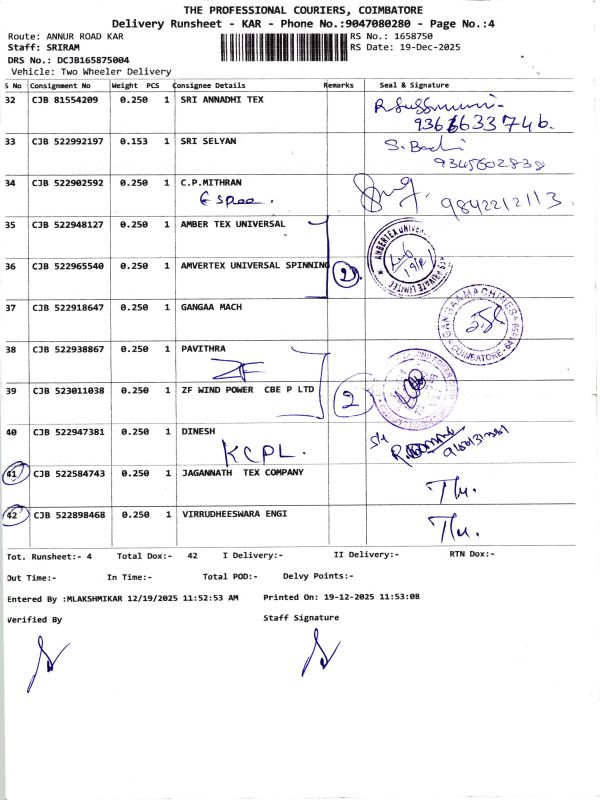 THE PROFESSIONAL COURIERS, COIMBATORE
Delivery Runsheet - KAR - Phone No.:9047080280 - Page No.:4
Route: ANNUR ROAD KAR RS No.: 1658750
Staff: SRIRAM RS Date: 19-Dec-2025
DRS No.: DCJB165875004
Vehicle: Two Wheeler Delivery
S No Consignment No Weight PCS Consignee Details Remarks Seal & Signature
32 CJB 81554209 0.250 1 SRI ANNADHI TEX
33 CJB 522992197 0.153 1 SRI SELYAN
9345602838
34 CJB 522902592 0.250 1 C.P.MITHRAN
9842212113
35 CJB 522948127 0.250 1 AMBER TEX UNIVERSAL
36 CJB 522965540 0.250 1 AMVERTEX UNIVERSAL SPINNING 2
37 CJB 522918647 0.250 1 GANGAA MACH
GANGAA MACHINES
COIMBATORE
38 CJB 522938867 0.250 1 PAVITHRA
ZF
39 CJB 523011038 0.250 1 ZF WIND POWER CBE P LTD 2
40 CJB 522947381 0.250 1 DINESH
KCPL.
41 CJB 522584743 0.250 1 JAGANNATH TEX COMPANY
42 CJB 522898468 0.250 1 VIRRUDHEESWARA ENGI
Tot. Runsheet:- 4 Total Dox:- 42 I Delivery:- II Delivery:- RTN Dox:-
Out Time:- In Time:- Total POD:- Delvy Points:-
Entered By :MLAKSHMIKAR 12/19/2025 11:52:53 AM Printed On: 19-12-2025 11:53:08
Verified By Staff Signature